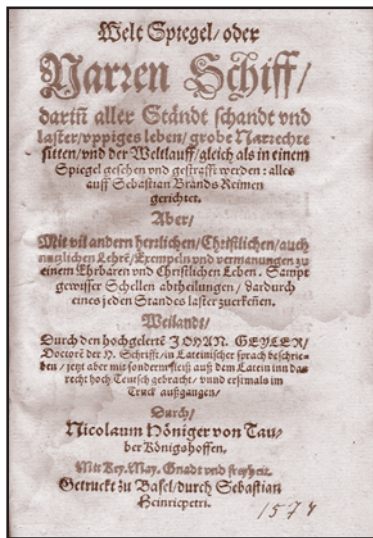 Welt Spiegel/ oder
Narren Schiff/
darin̄ aller Ständt schandt vnd
laster/vppiges leben/ grobe Narrechte
sitten/vnd der Weltlauff/gleich als in einem
Spiegel gesehen vnd gestrafft werden: alles
auff Sebastian Brands Reimen
gerichtet.
Aber/
Mit vil andern herrlichen/Christlichen/auch
nutzlichen Lehrē/Exempeln vnd vermanungen zu
einem Ehrbaren vnd Christlichen Leben. Sampt
gewisser Schellen abtheilungen/ dardurch
eines jeden Standes laster zuerkeñen.
Weilandt/
Durch den hochgelertē JOHAN. GEYLER/
Doctorē der H. Schrifft/in Lateinischer sprach beschrie-
ben/ jetzt aber mit sonderm fleiß auß dem Latein inn das
recht hoch Teutsch gebracht/ vnnd erstmals im
Truck außgangen/
Durch/
Nicolaum Höniger von Tau-
ber Königshoffen.
Mit Key. May. Gnadt vnd freyheit.
Getruckt zu Basel/durch Sebastian
Heinricpetri.
1574